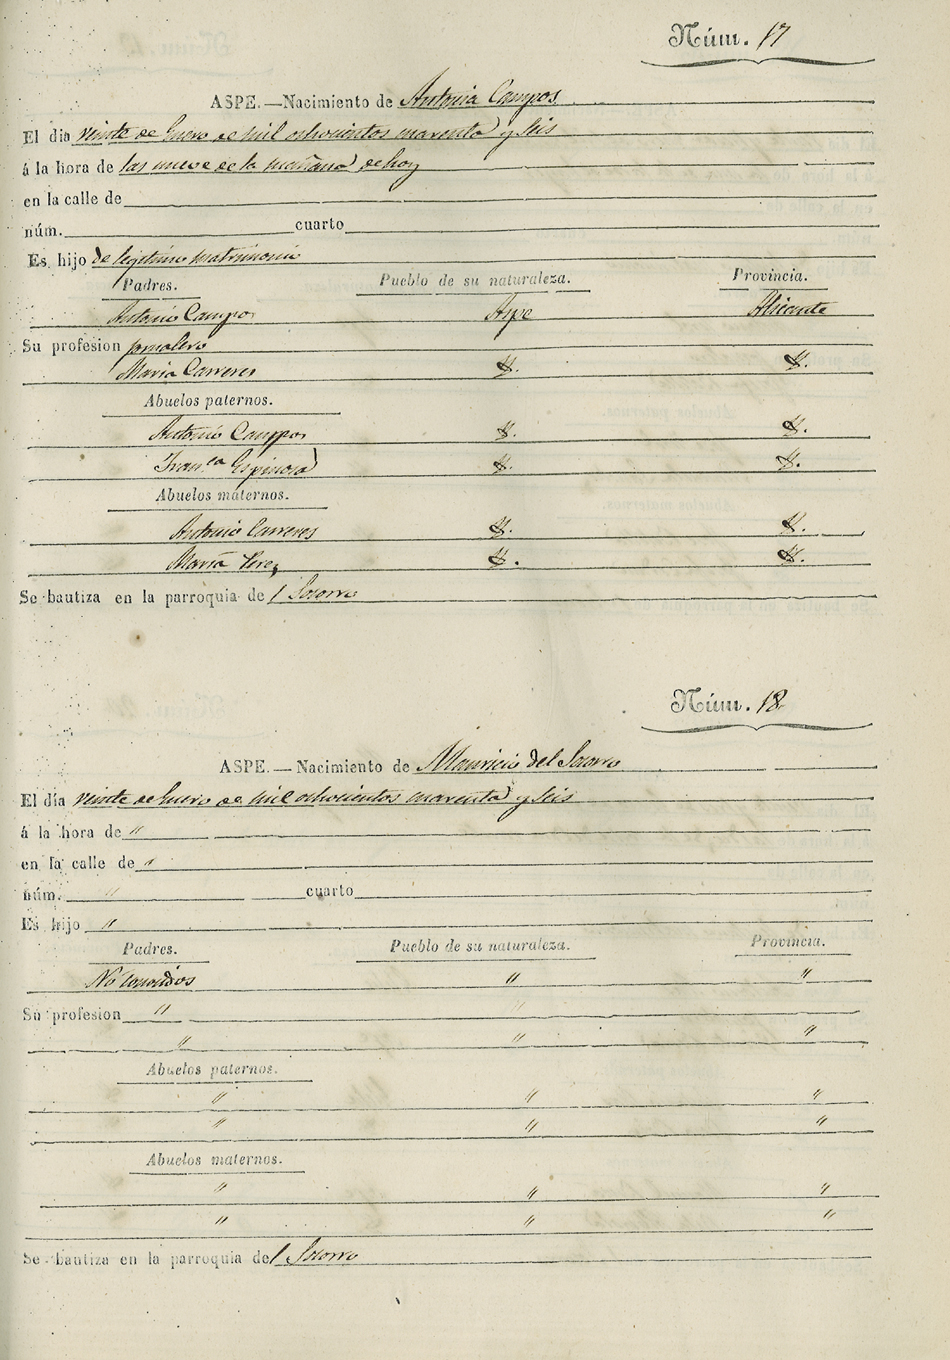 Núm. 17
ASPE.—Nacimiento de Antonia Campos
El dia veinte de Enero de mil ochocientos cuarenta y seis
á la hora de las nueve de la mañana de hoy
en la calle de
núm. cuarto
Es hijo de legitimo matrimonio
Padres. Pueblo de su naturaleza. Provincia.
Antonio Campos Aspe Alicante
Su profesion jornalero
Maria Carreres Y. Y.
Abuelos paternos.
Antonio Campos Y. Y.
Fran.ca Espinosa Y. Y.
Abuelos maternos.
Antonio Carreres Y. Y.
Maria Perez Y. Y.
Se bautiza en la parroquia de l Socorro
Núm. 18
ASPE.—Nacimiento de Mauricio del Socorro
El día veinte de Enero de mil ochocientos cuarenta y seis
á la hora de "
en la calle de "
núm. " cuarto
Es hijo "
Padres. Pueblo de su naturaleza. Provincia.
No conocidos " "
Su profesion " "
" " "
Abuelos paternos.
" " "
" " "
Abuelos maternos.
" " "
" " "
Se bautiza en la parroquia de l Socorro